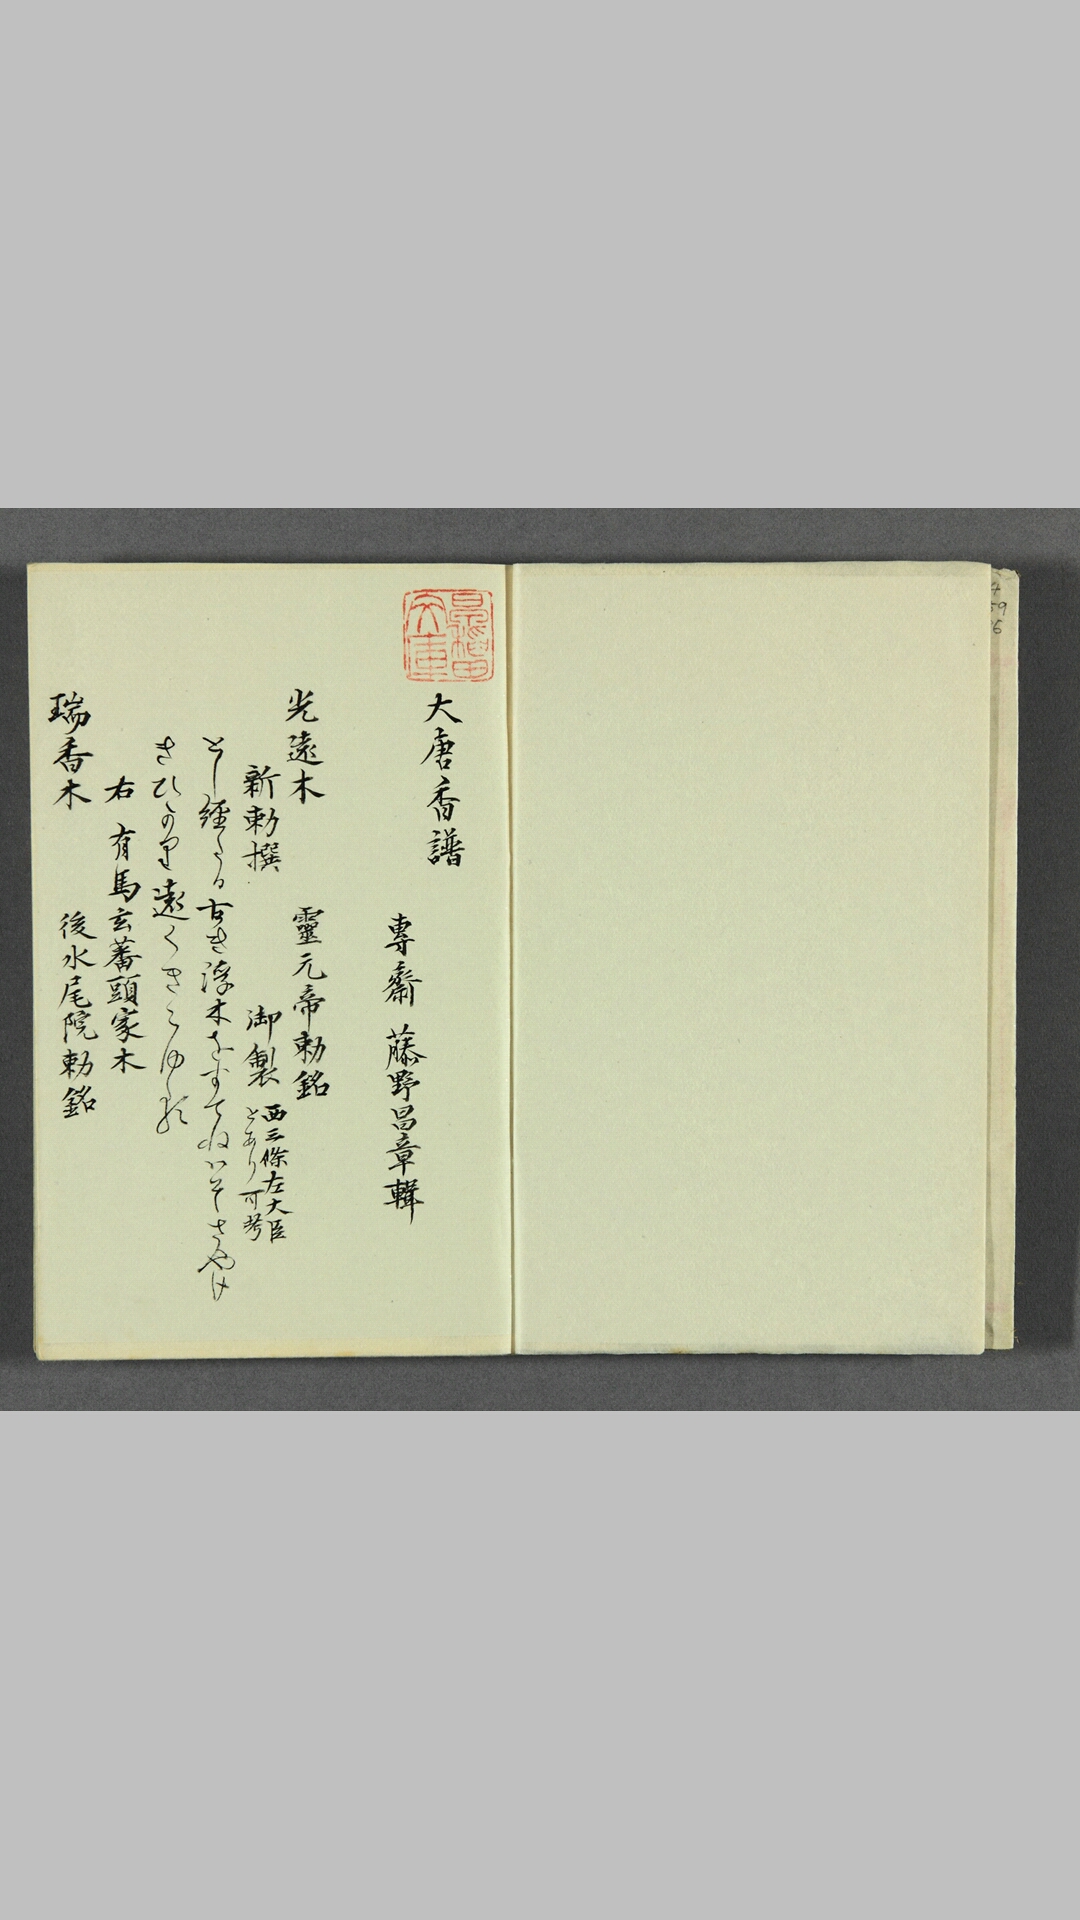 大唐香譜
專齋 藤野昌章輯
光遠木 靈元帝勅銘
新勅撰 御製 西三條左大臣
とあり可考
とし經たる古き浮木をすてねはそさやけ
きひかり遠くきこゆる
右 有馬玄蕃頭家木
瑞香木 後水尾院勅銘